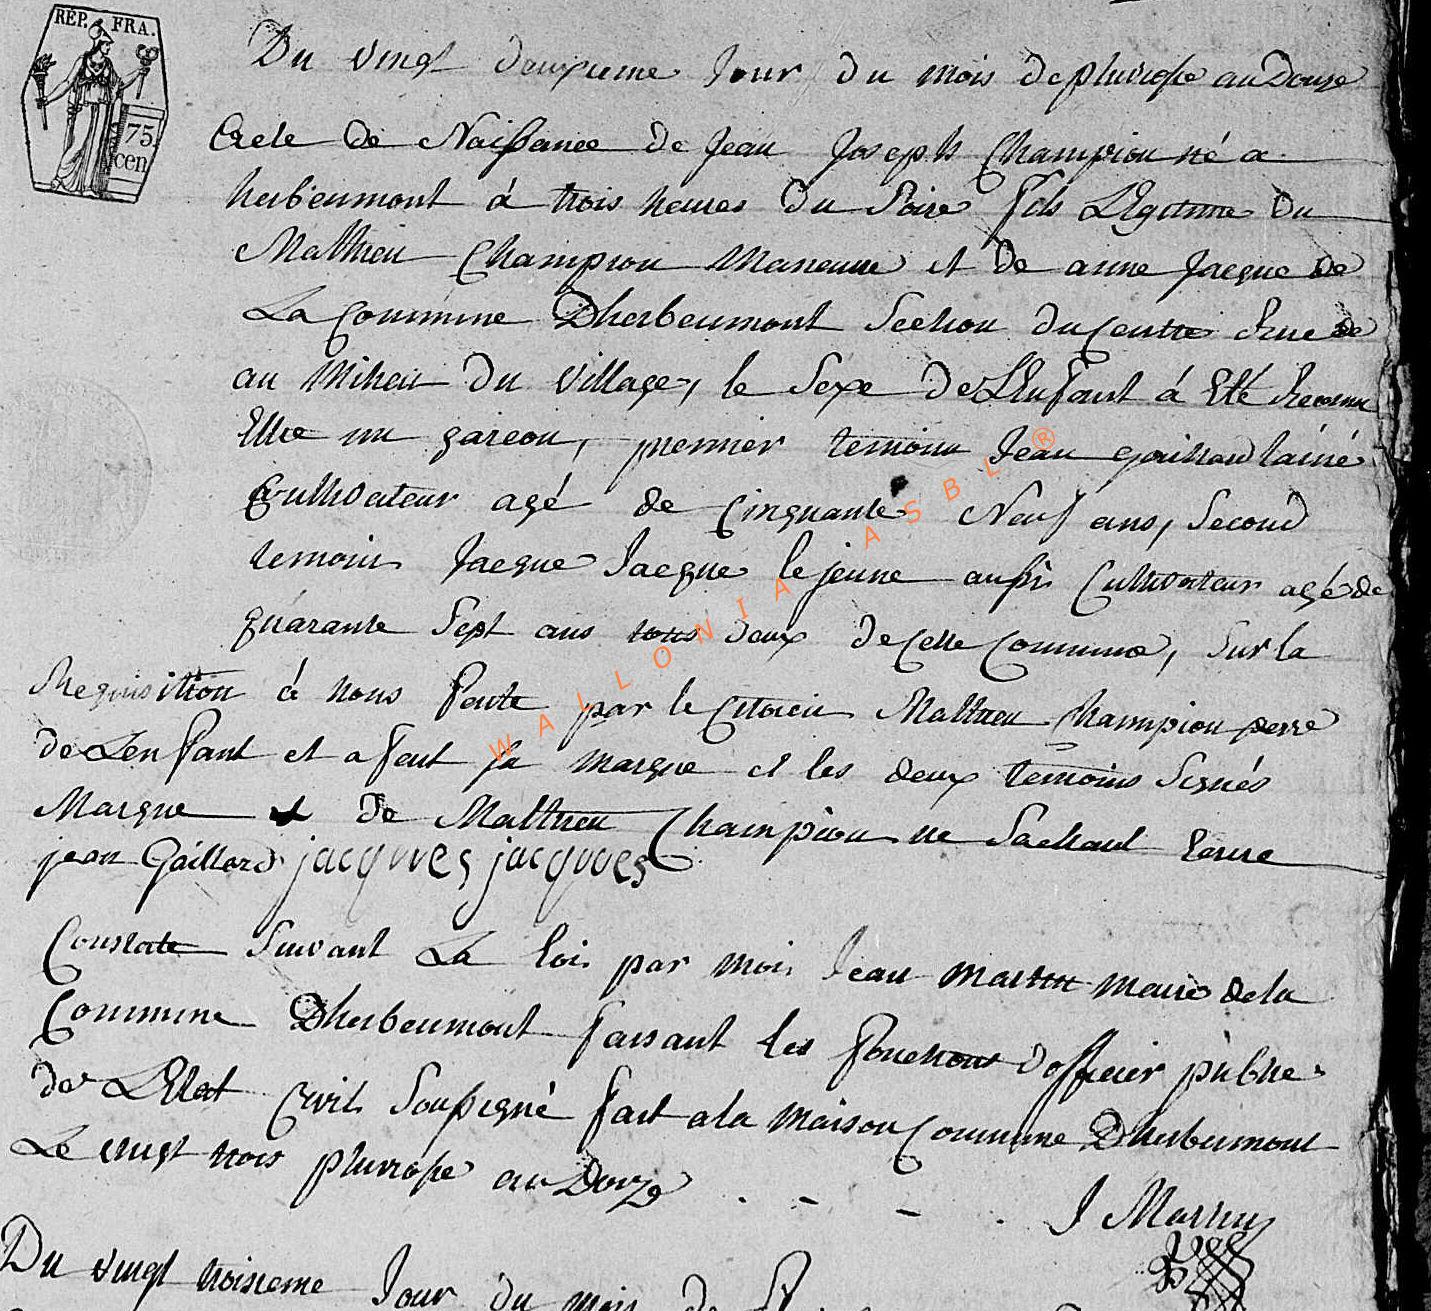 RÉP. FRA.
75.
cen
Du vingt deuxieme Jour du mois de pluviose an Douze
Acte de Naissance de Jean Joseph Champion né a
herbeumont à trois heures du Soire fils Legitime Du
Mathieu Champion Maneuvre et de anne Jacque de
La Commune Dherbeumont Section du Centre Rue de
au Milieu du village, le Sexe de L'Enfant à Eté Reconnu
Etre un garcon, premier temoin Jean gaillard lainé
Cultivateur agé de Cinquante Neuf ans, Second
temoin Jacque Jacque le jeune aussi Cultivateur agé de
quarante Sept ans tous deux de Cette Commune, Sur la
Requisition à nous faite par le Citoien Mathieu Champion perre
de Lenfant et a fait sa marque et les deux temoins Signés
Marque de Mathieu Champion ne Sachant Ecrire
jean Gaillard jacques jacques
Constate Suivant La loi par moi Jean martin maire de la
Commune Dherbeumont faisant les fonctions dofficier public
de LEtat Civil Soussigné fait a la maison Commune Dherbeumont
Le vingt trois pluviose an Douze
J Martin
Du vingt troisieme Jour du mois de
WALLONIA ASBL ®